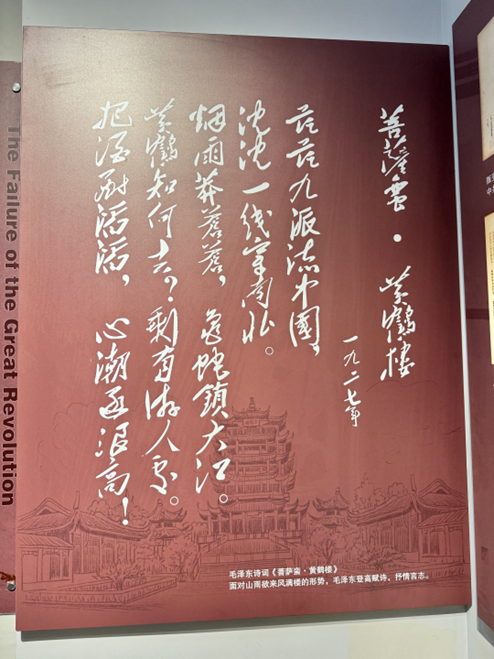 菩萨蛮·黄鹤楼
一九二七年
茫茫九派流中國，
沈沈一线穿南北。
烟雨莽蒼蒼，龟蛇鎖大江。
黄鹤知何去？剩有游人處。
把酒酹滔滔，心潮逐浪高！
毛泽东诗词《菩萨蛮·黄鹤楼》
面对山雨欲来风满楼的形势，毛泽东登高赋诗，抒情言志。
The Failure of the Great Revolution